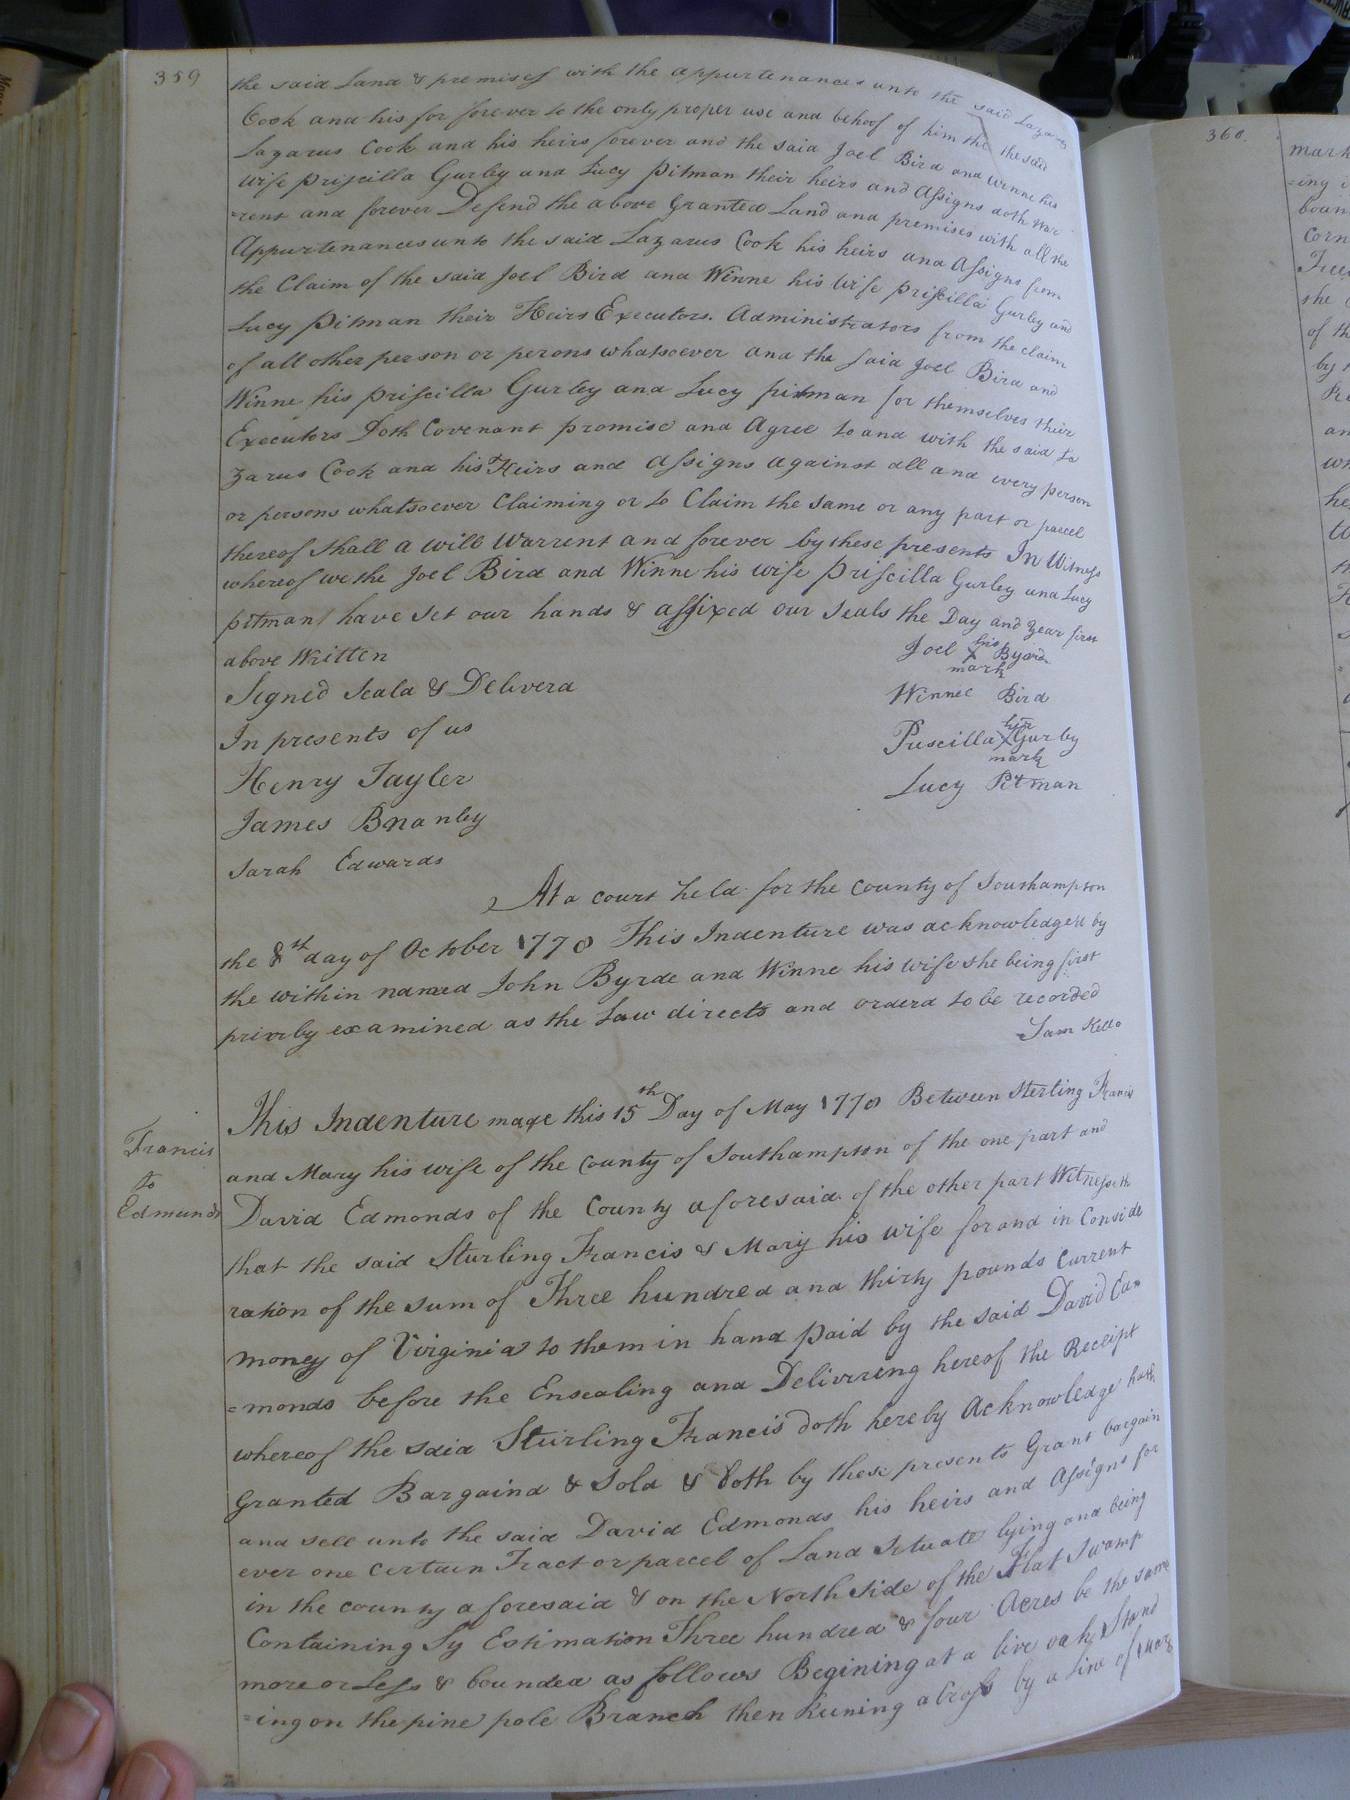 359
the said Land & premises with the appurtenances unto the said Lazarus
Cook and his for forever to the only proper use and behoof of him the the said
Lazarus Cook and his heirs forever and the said Joel Bird and Winne his
wife Priscilla Gurley and Lucy Pitman their heirs and Assigns doth War
=rent and forever Defend the above Granted Land and premises with all the
Appurtenances unto the said Lazarus Cook his heirs and Assigns from
the Claim of the said Joel Bird and Winne his Wife Priscilla Gurley and
Lucy Pitman their Heirs Executors. Administrators from the claim
of all other person or perons whatsoever and the said Joel Bird and
Winne his Priscilla Gurley and Lucy pitman for themselves their
Executors Doth Covenant promise and Agree to and with the said La
zarus Cook and his Heirs and Assigns against all and every person
or persons whatsoever Claiming or to Claim the same or any part or parcel
thereof shall a will Warrent and forever by these presents In Witness
whereof we the Joel Bird and Winne his wife Priscilla Gurley and Lucy
pitman have set our hands & affixed our seals the Day and Year first
above Written
Joel his X mark Byrde
Signed Seald & Deliverd
Winnee Bird
In presents of us
Priscilla her X mark Gurley
Henry Tayler
Lucy Pitman
James Branley
Sarah Edwards
At a court held for the County of Southampton
the 8st day of October 1770 This Indenture was acknowledged by
the within named John Byrde and Winne his wife she being first
privily examined as the Law directs and orderd to be recorded
Sam Kello
This Indenture made this 15th Day of May 1770 Between Sterling Francis
Francis
to
Edmunds
and Mary his wife of the County of Southampton of the one part and
David Edmonds of the County aforesaid of the other part Witnesseth
that the said Sturling Francis & Mary his wife for and in Conside
ration of the sum of Three hundred and thirty pounds Current
money of Virginia to them in hand paid by the said David Ed
=monds before the Ensealing and Delivereng hereof the Receipt
whereof the said Sturling Francis doth hereby Acknowledge hath
Granted Bargaind & Sold & doth by these presents Grant bargain
and sell unto the said David Edmonds his heirs and Assigns for
ever one certain Tract or parcel of Land Situate lying and being
in the county aforesaid & on the North Side of the Flat Swamp
Containing by Estimation Three hundred & four Acres be the same
more or Less & bounded as follows Begining at a live oak Stand
=ing on the pine pole Branch then Runing a Cross by a line of
360
mark
=ing
boun
Corn
she
of th
by
an
wh
he
to